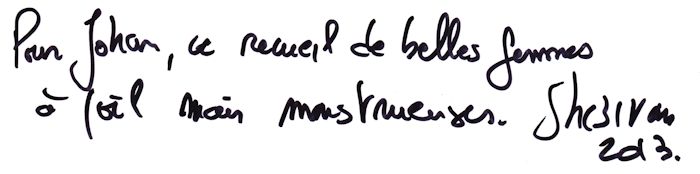 Pour Johan, ce recueil de belles femmes
à poil mais monstrueuses.
2013.